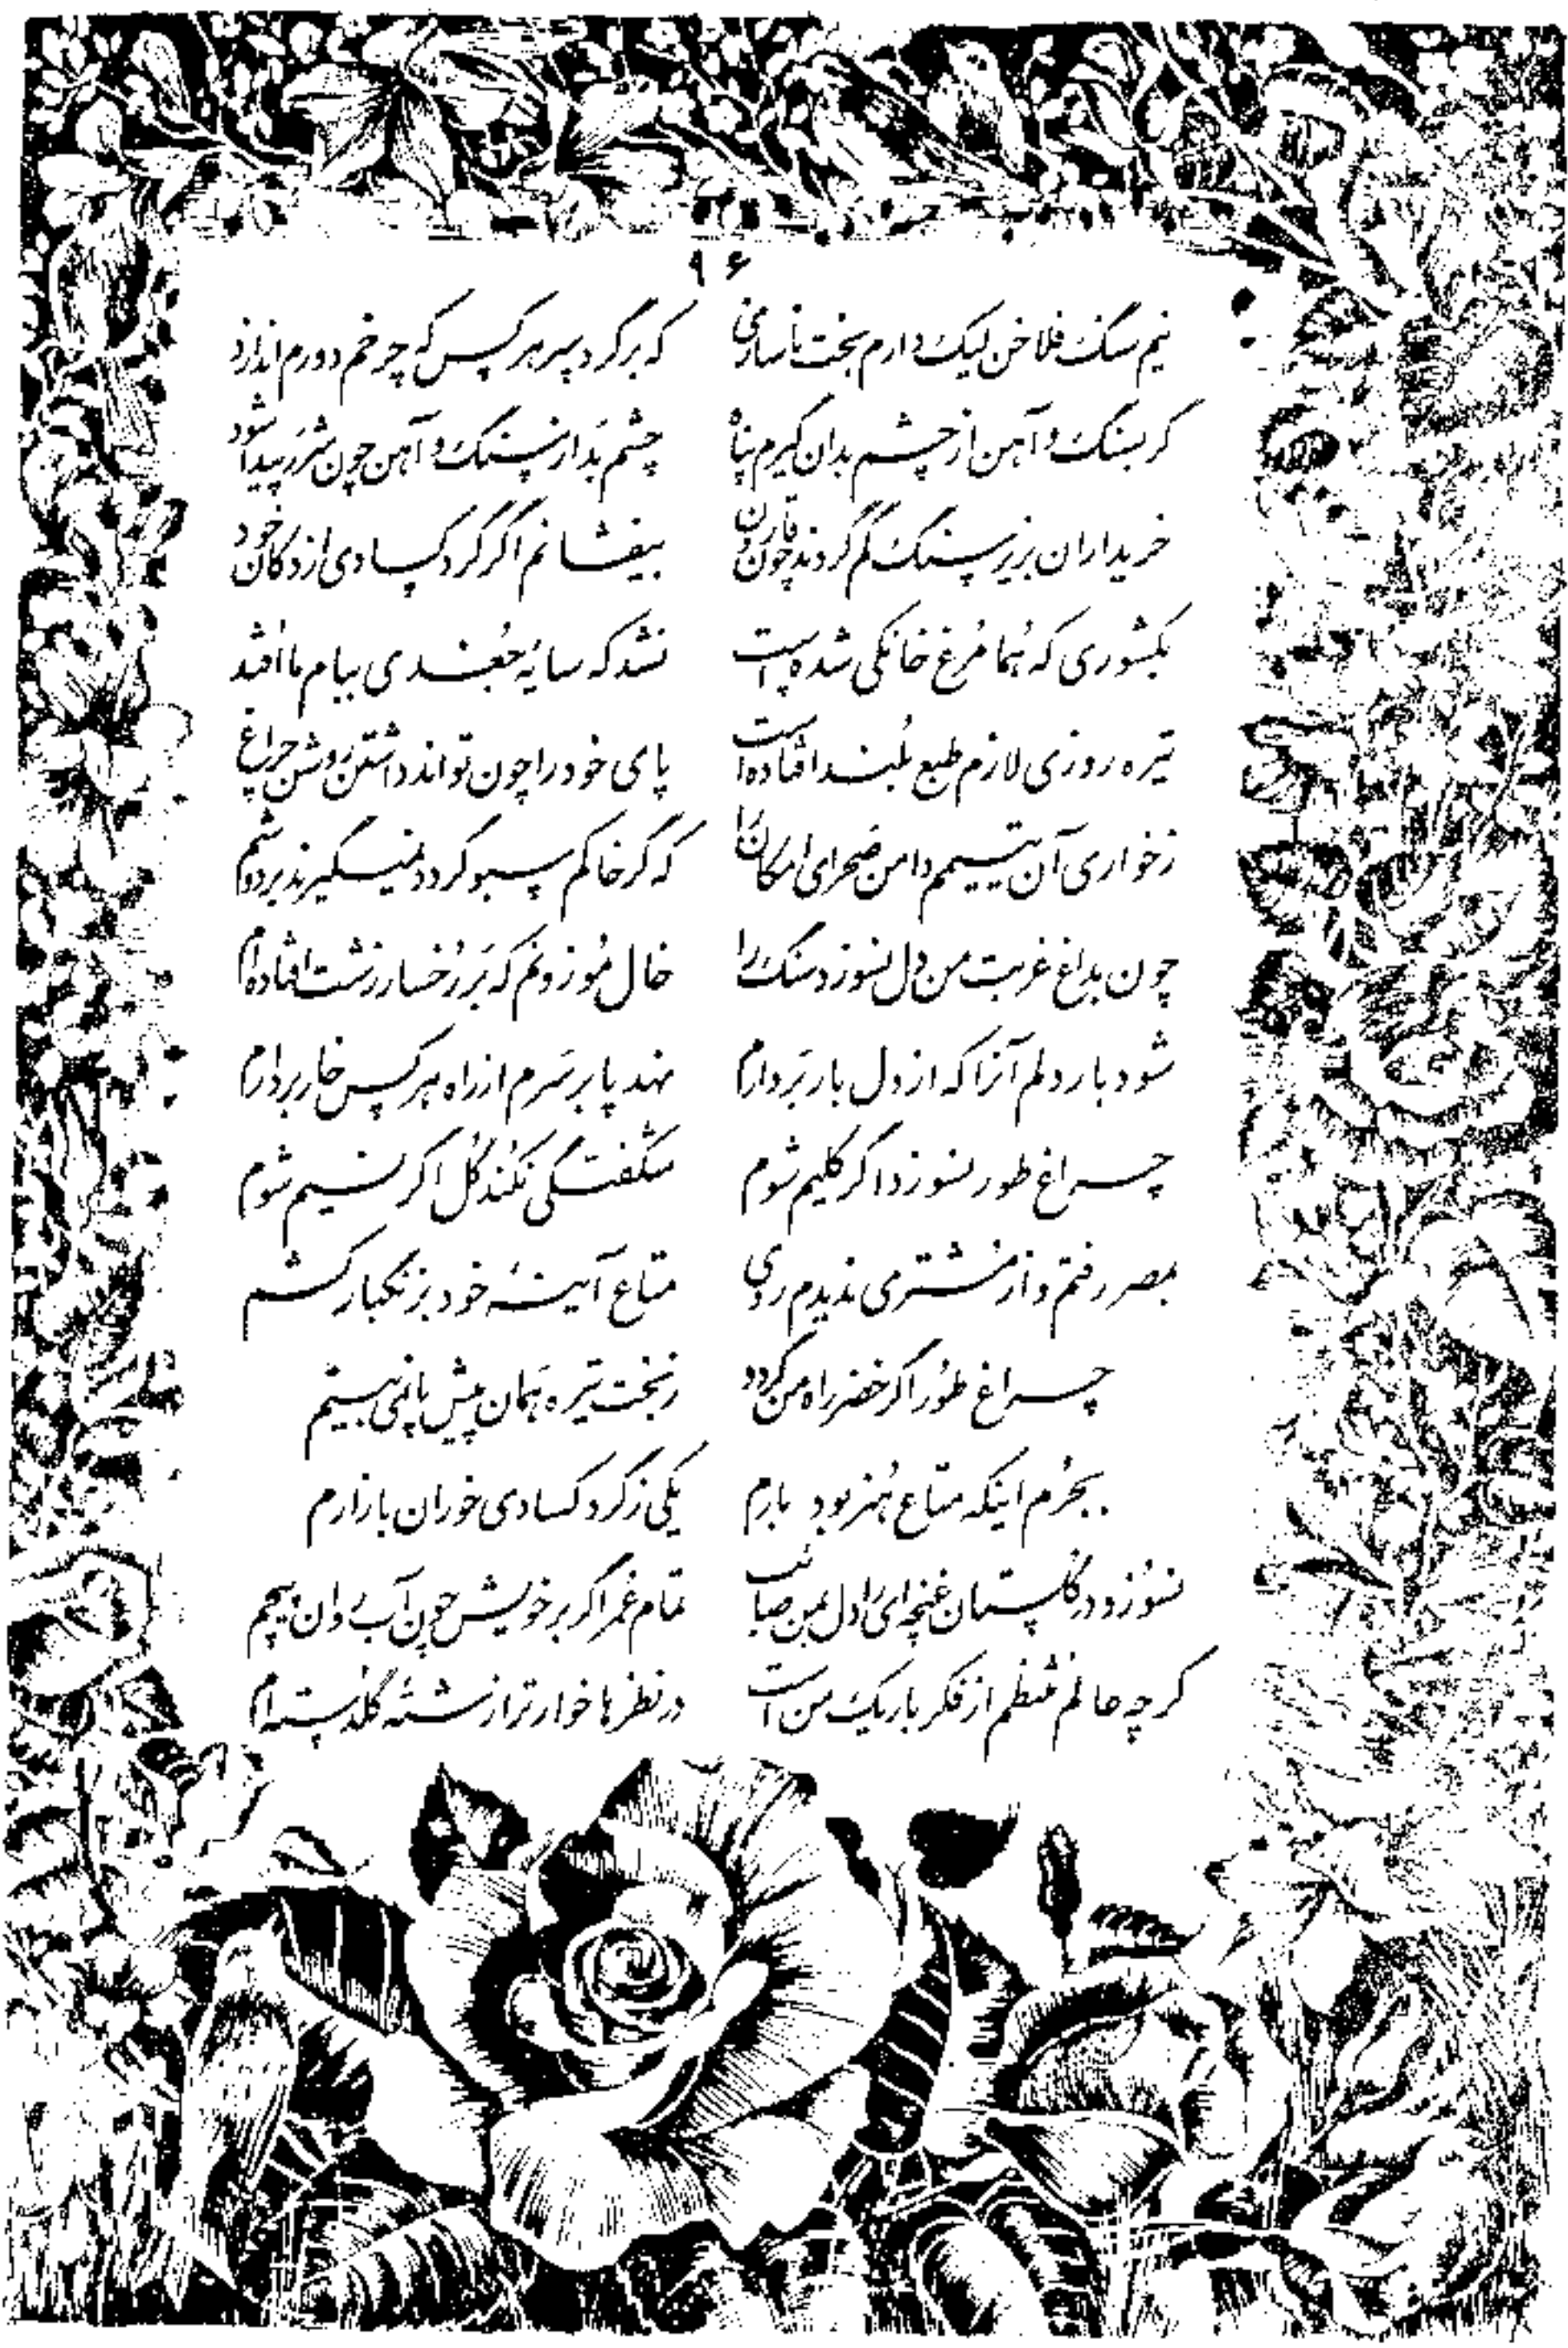 ۹۶
نیم سنگ فلاخن لیک دارم بخت ناسازی که بر گرد سر هر کس که چرخم دورم اندازد
گر بسنگ و آهن از چشم بدان گیرم پناه چشم بد از سنگ و آهن چون شرر پیدا شود
خریداران بزیر سنگ گم گردند چون قارون بیفشانم اگر گرد کسادی از دکان خود
بکشوری که هُما مُرغ خانگی شده است نشد که سایهٔ جُغدی ببام ما افتد
تیره روزی لازم طبع بُلند افتاده است پای خود را چون تواند داشتن روشن چراغ
زخواری آن یتییم دامن صَحرای امکان را که گر خاکم سبو گردد نمیگیرند بر دوشم
چون بداغ غربت من دل نسوزد سنگ را خال مُوزونم که بَر رُخسار زشت افتاده ام
شود بار دلم آنرا که از دل بار بَردارم نهد پا بر سَرم از راه هر کس خار بردارم
چراغ طور نسوزد اگر کلیم شوم شگفتگی نکُند گُل اگر نسیم شوم
بمصر رفتم و از مُشتری ندیدم روی متاع آینهٔ خود بزنگبار کشم
چراغ طُور اگر خضر راه من گردد زبخت تیره هَمان پیش پا نمی بینم
بجُرم اینکه متاع هُنر بود بارم یکی زگرد کسادی خوران بازارم
نسوُزد در گلستان غنچه ای را دل بمن صائب تمام عُمر اگر بر خویش چون آب روان پیچم
گرچه عالم مُنظم از فکر باریک من است در نظرها خوارتر از رشتهٔ گلدسته ام